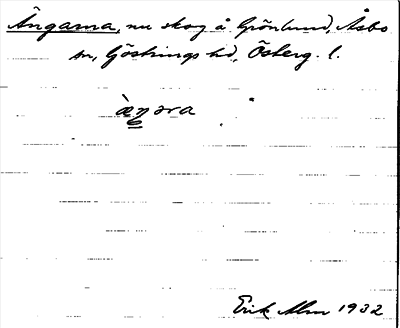 Ängarna, nu skog å Grönlund, Åsbo
sn, Göstrings hd, Österg. l.
àŋ̠ɔra
Erik Alm 1932